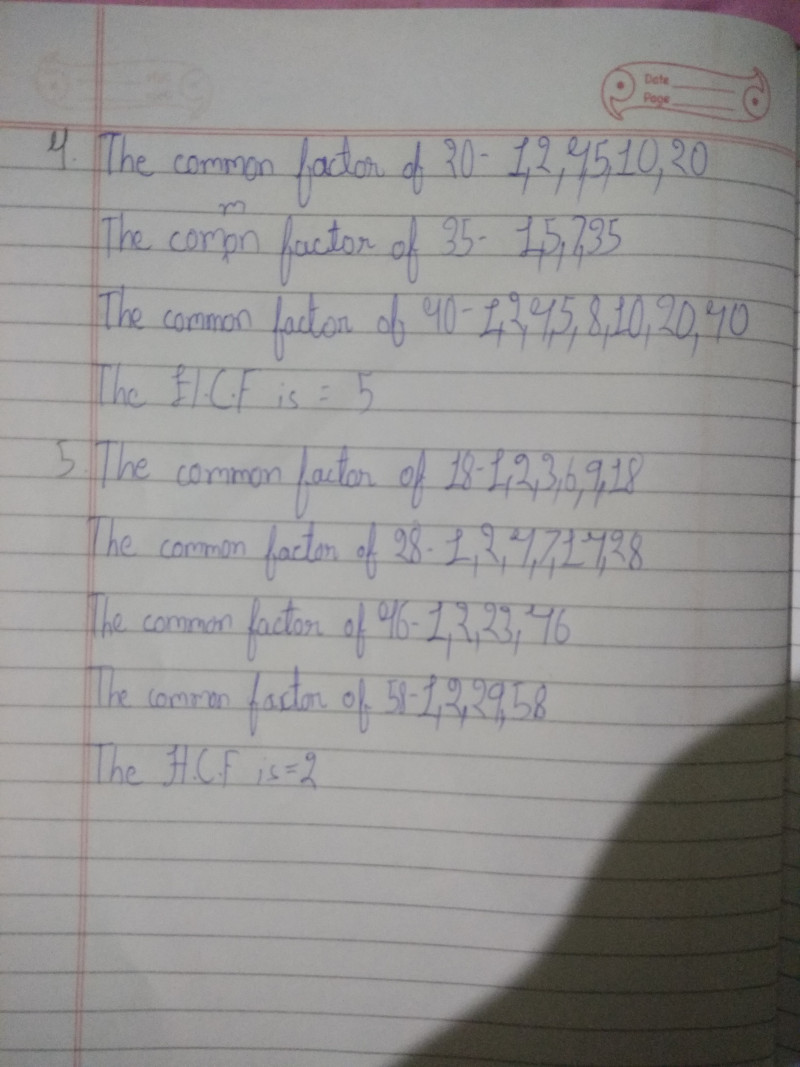 Date
Page
4. The common factor of 20- 1,2,4,5,10,20
m
The comon factor of 35- 1,5,7,35
The common factor of 40-1,2,4,5,8,10,20,40
The H.C.F is = 5
5. The common factor of 18-1,2,3,6,9,18
The common factor of 28-1,2,4,7,14,28
The common factor of 46-1,2,23,46
The common factor of 58-1,2,29,58
The H.C.F is=2